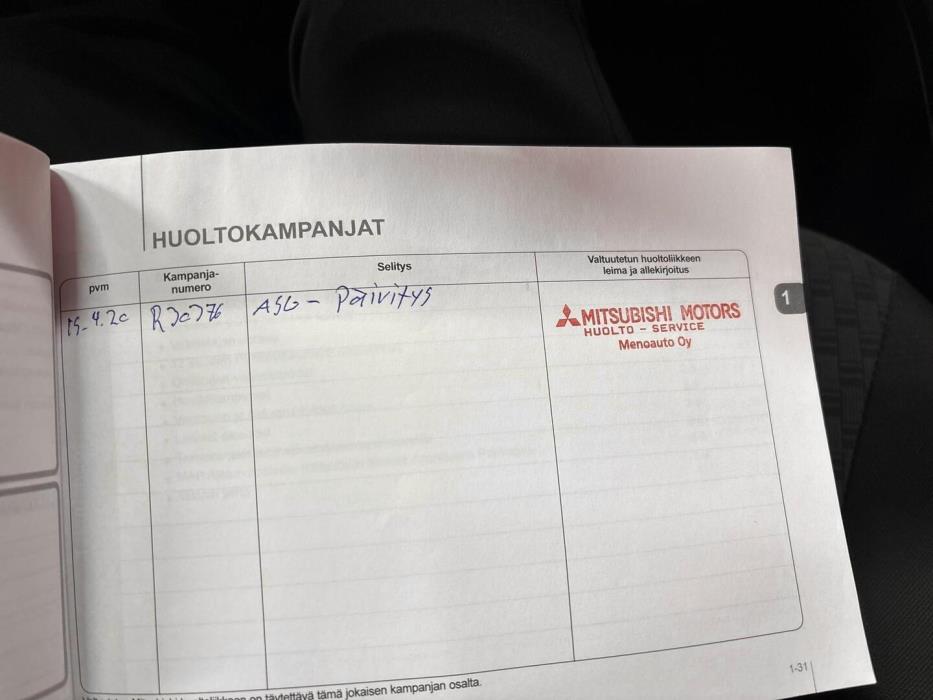 HUOLTOKAMPANJAT
pvm
Kampanja-
numero
Selitys
Valtuutetun huoltoliikkeen
leima ja allekirjoitus
15.4.20
ASG - Päivitys
MITSUBISHI MOTORS
HUOLTO - SERVICE
Menoauto Oy
1
on täytettävä tämä jokaisen kampanjan osalta.
1-31